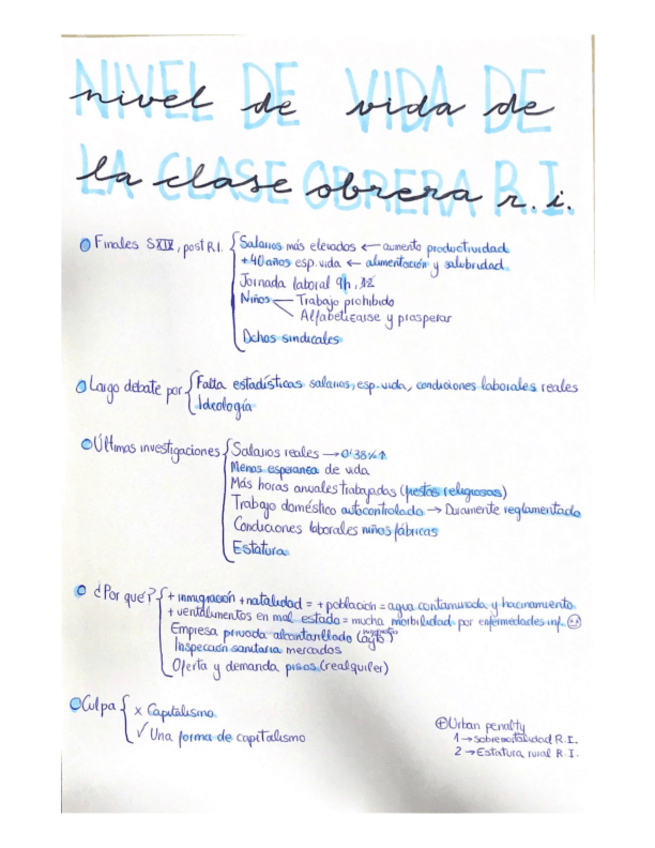 NIVEL DE VIDA DE
nivel de vida de
LA CLASE OBRERA R.I.
la clase obrera r.i.
Finales SXIX, post R.I. { Salarios más elevados ← aumento productividad
+40 años esp. vida ← alimentación y salubridad
Jornada laboral 9h, 12
Niños — Trabajo prohibido
Alfabetizarse y prosperar
Dchos sindicales
Largo debate por { Falta estadísticas salarios, esp. vida, condiciones laborales reales
Ideología
Últimas investigaciones { Salarios reales → 0'38% ↑
Menos esperanza de vida
Más horas anuales trabajadas (fiestas religiosas)
Trabajo doméstico autocontrolado → Duramente reglamentado
Condiciones laborales niños fábricas
Estatura
¿Por qué? { + inmigración + natalidad = + población = agua contaminada y hacinamiento
+ venta alimentos en mal estado = mucha morbilidad por enfermedades inf.
Empresa privada alcantarillado (ayto)
Inspección sanitaria mercados
Oferta y demanda pisos (realquiler)
Culpa { x Capitalismo
✓ Una forma de capitalismo
⊕ Urban penalty
1 → sobremortalidad R.I.
2 → Estatura rural R.I.